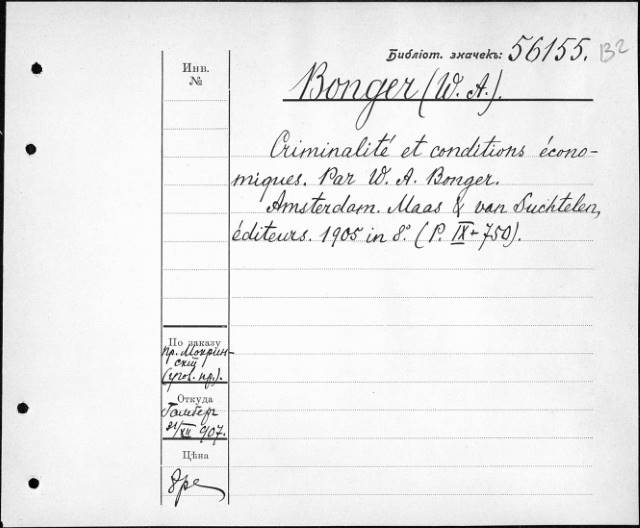 Библіот. значекъ: 56155. B2
Инв.
№
Bonger (W. A.).
Criminalité et conditions écono-
miques. Par W. A. Bonger.
Amsterdam. Maas & van Suchtelen,
éditeurs. 1905 in 8º (P. IX+750).
По заказу
пр. Мокрин-
скій
(угол. пр.).
Откуда
Гамберг
21/XII 907.
Цѣна